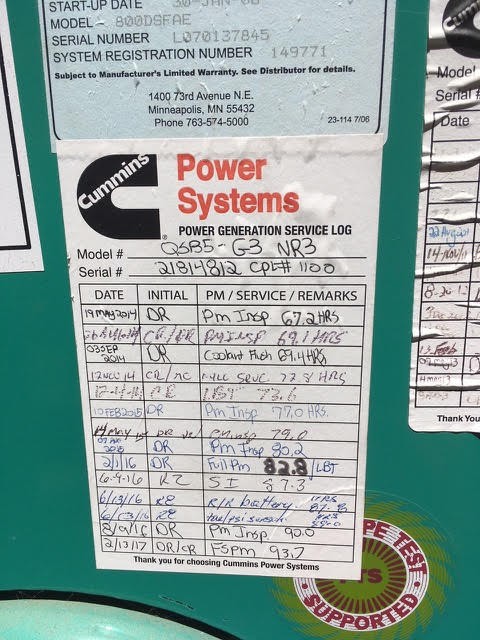 START-UP DATE 30-JAN-08
MODEL 800DSFAE
SERIAL NUMBER L070137845
SYSTEM REGISTRATION NUMBER 149771
Subject to Manufacturer's Limited Warranty. See Distributor for details.
1400 73rd Avenue N.E.
Minneapolis, MN 55432
Phone 763-574-5000
23-114 7/06
Cummins
Power
Systems
POWER GENERATION SERVICE LOG
Model # QSB5-G3 NR3
Serial # 21814812 CPL# 1100
DATE INITIAL PM / SERVICE / REMARKS
19 MAY 2014 DR Pm Insp 67.2 HRS
PM INSP 69.1 HRS
03 SEP 2014 DR Coolant Flush 89.4 HRS
12 NOV 14 CR/
HRS
LBT 73.6
10 FEB 2015 DR Pm Insp 77.0 HRS.
14 May 79.0
DR Pm Insp 80.2
2/1/16 DR Full Pm 82.8 / LBT
6-9-16 RZ SI 87.3
6/13/16 RE R/R battery
6/13/16 RE
8/9/16 DR Pm Insp 90.0
2/13/17 DR/CR FSpm 93.7
Thank you for choosing Cummins Power Systems
Model
Serial #
Date
22 August
14 Nov
Thank You
PE TEST
SUPPORTED